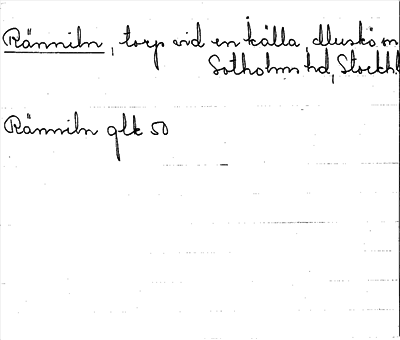 Ränniln, torp vid en källa, Muskö sn
Sotholms hd, Stockh.
Ränniln glk 50